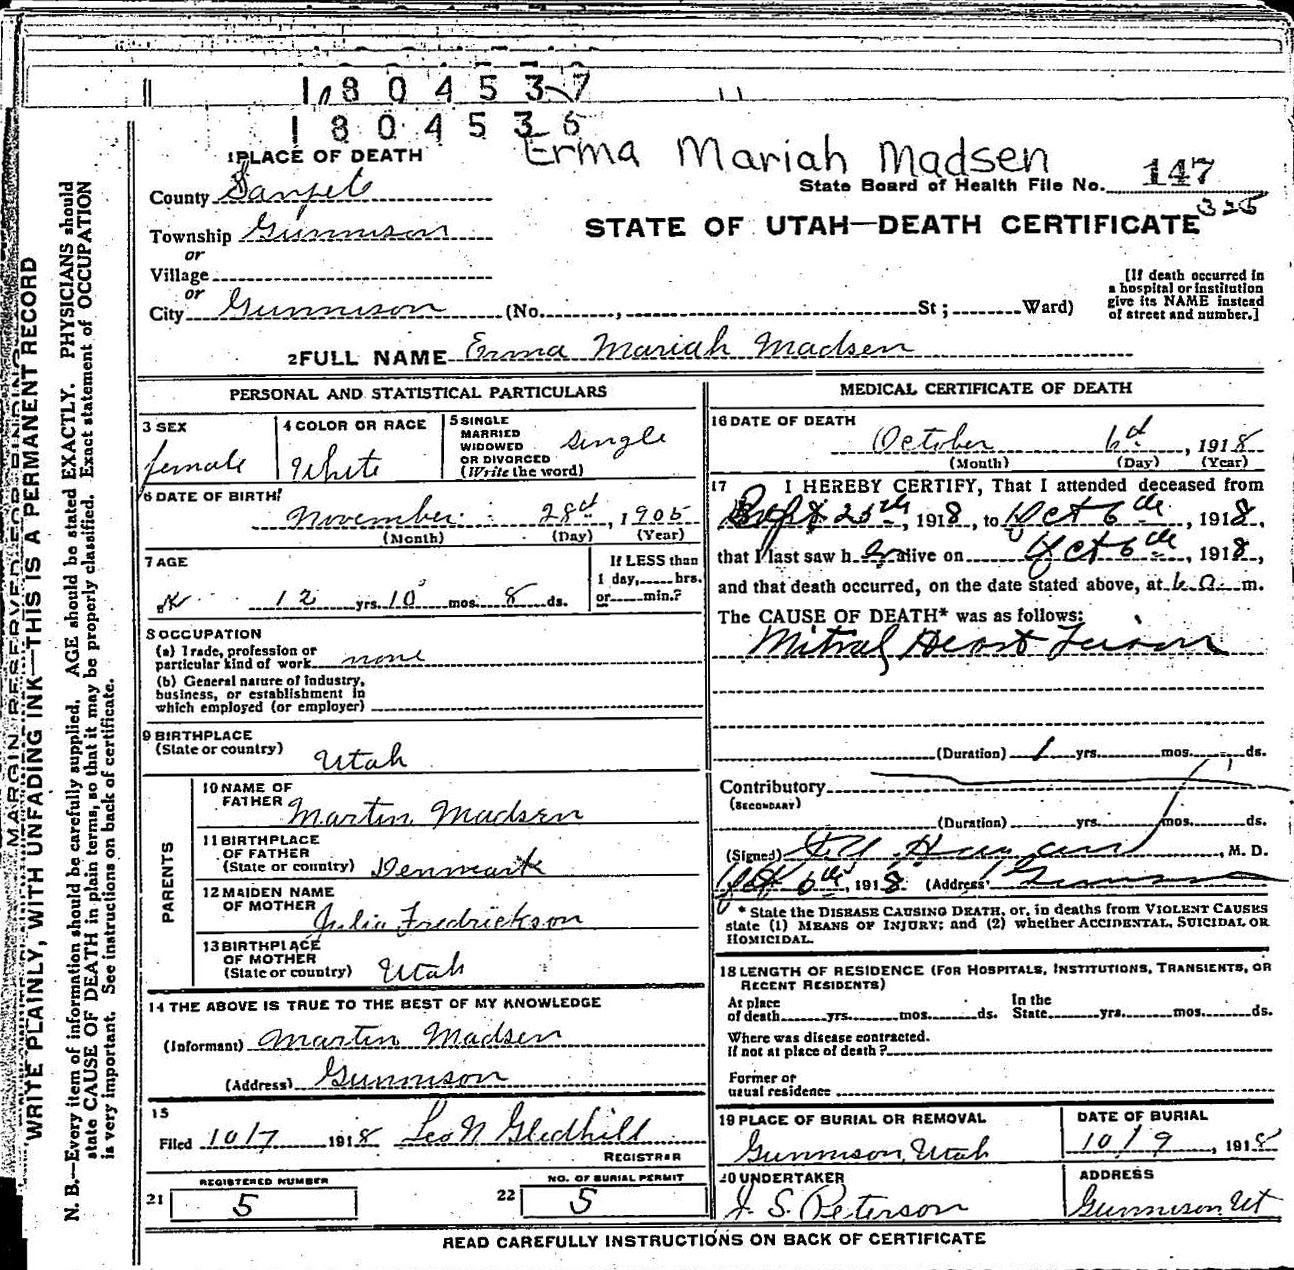 1804537
1804536
Erma Mariah Madsen
1 PLACE OF DEATH
State Board of Health File No. 147
325
County Sanpete
STATE OF UTAH—DEATH CERTIFICATE
Township Gunnison
or
Village
or
City Gunnison (No. , St; Ward)
[If death occurred in
a hospital or institution
give its NAME instead
of street and number.]
2 FULL NAME Erma Mariah Madsen
PERSONAL AND STATISTICAL PARTICULARS
3 SEX
female
4 COLOR OR RACE
White
5 SINGLE
MARRIED
WIDOWED
OR DIVORCED
(Write the word)
single
6 DATE OF BIRTH
November 28th, 1905
(Month) (Day) (Year)
7 AGE
12 yrs. 10 mos. 8 ds.
If LESS than
1 day, hrs.
or min.?
8 OCCUPATION
(a) Trade, profession or
particular kind of work none
(b) General nature of industry,
business, or establishment in
which employed (or employer)
9 BIRTHPLACE
(State or country) Utah
PARENTS
10 NAME OF
FATHER Martin Madsen
11 BIRTHPLACE
OF FATHER
(State or country) Denmark
12 MAIDEN NAME
OF MOTHER
Julia Fredrickson
13 BIRTHPLACE
OF MOTHER
(State or country) Utah
14 THE ABOVE IS TRUE TO THE BEST OF MY KNOWLEDGE
(Informant) Martin Madsen
(Address) Gunnison
15
Filed 10/7 1918 Leo N Gledhill
REGISTRAR
21 REGISTERED NUMBER
5
22 NO. OF BURIAL PERMIT
5
MEDICAL CERTIFICATE OF DEATH
16 DATE OF DEATH
October 6th, 1918
(Month) (Day) (Year)
17 I HEREBY CERTIFY, That I attended deceased from
Sept 25th, 1918, to Oct 6th, 1918,
that I last saw her alive on Oct 6th, 1918,
and that death occurred, on the date stated above, at 6 a. m.
The CAUSE OF DEATH* was as follows:
Mitral Heart Lesion
(Duration) 1 yrs. mos. ds.
Contributory
(SECONDARY)
(Duration) yrs. mos. ds.
(Signed) , M. D.
Oct 6th, 1918 (Address) Gunnison
* State the DISEASE CAUSING DEATH, or, in deaths from VIOLENT CAUSES
state (1) MEANS OF INJURY; and (2) whether ACCIDENTAL, SUICIDAL OR
HOMICIDAL.
18 LENGTH OF RESIDENCE (FOR HOSPITALS, INSTITUTIONS, TRANSIENTS, OR
RECENT RESIDENTS)
At place
of death yrs. mos. ds.
In the
State yrs. mos. ds.
Where was disease contracted.
if not at place of death?
Former or
usual residence
19 PLACE OF BURIAL OR REMOVAL
Gunnison, Utah
DATE OF BURIAL
10/9, 1918
20 UNDERTAKER
J. S. Peterson
ADDRESS
Gunnison Ut
READ CAREFULLY INSTRUCTIONS ON BACK OF CERTIFICATE
MARGIN RESERVED FOR BINDING
WRITE PLAINLY, WITH UNFADING INK—THIS IS A PERMANENT RECORD
N. B.—Every item of information should be carefully supplied. AGE should be stated EXACTLY. PHYSICIANS should
state CAUSE OF DEATH in plain terms, so that it may be properly classified. Exact statement of OCCUPATION
is very important. See instructions on back of certificate.